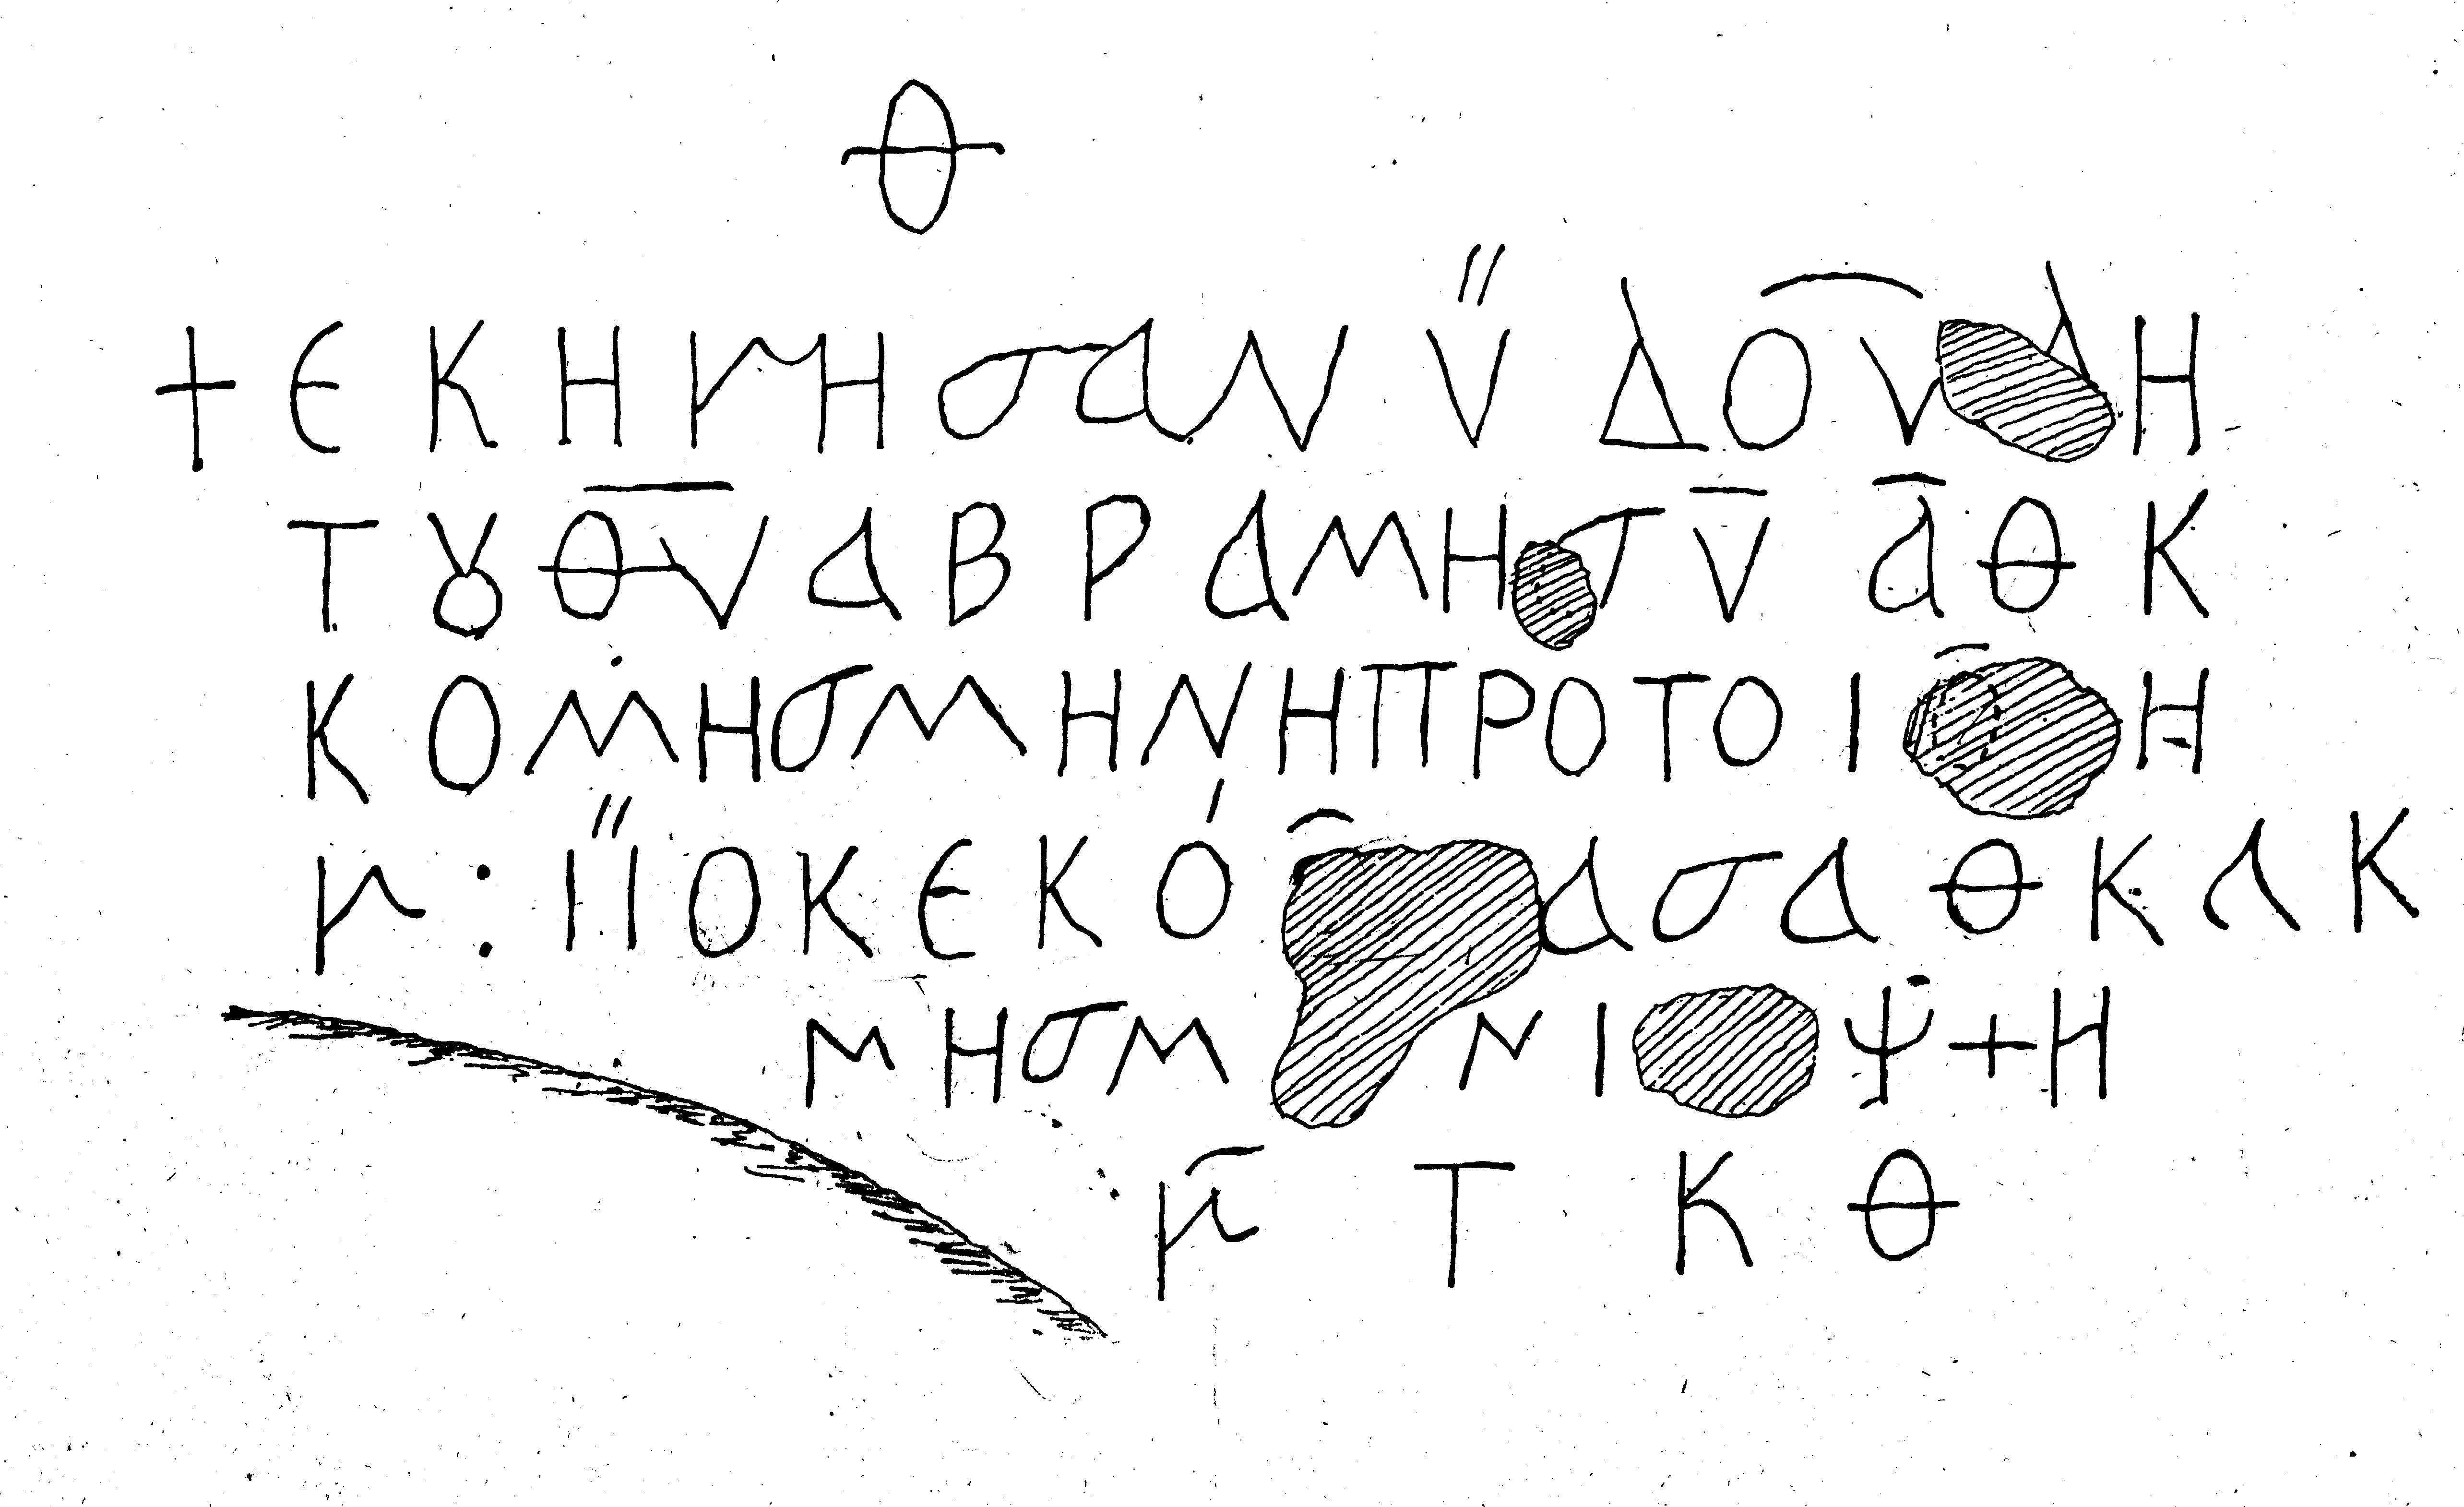 Θ
+ ЄΚΗΜΗσαΝ Ϋ ΔΟV ΔΗ
ΤȣΘVΑΒΡΑΜΗσV̄ᾱΘΚ
ΚΟΜΗσΜΗΝΗΠΡΟΤΟΙ Η
Μ : ΙΪΟΚЄΚΌ ασαΘΚΑΚ
ΜΗσΜ ΝΙ Ψ+Η
Μ̄ΤΚΘ